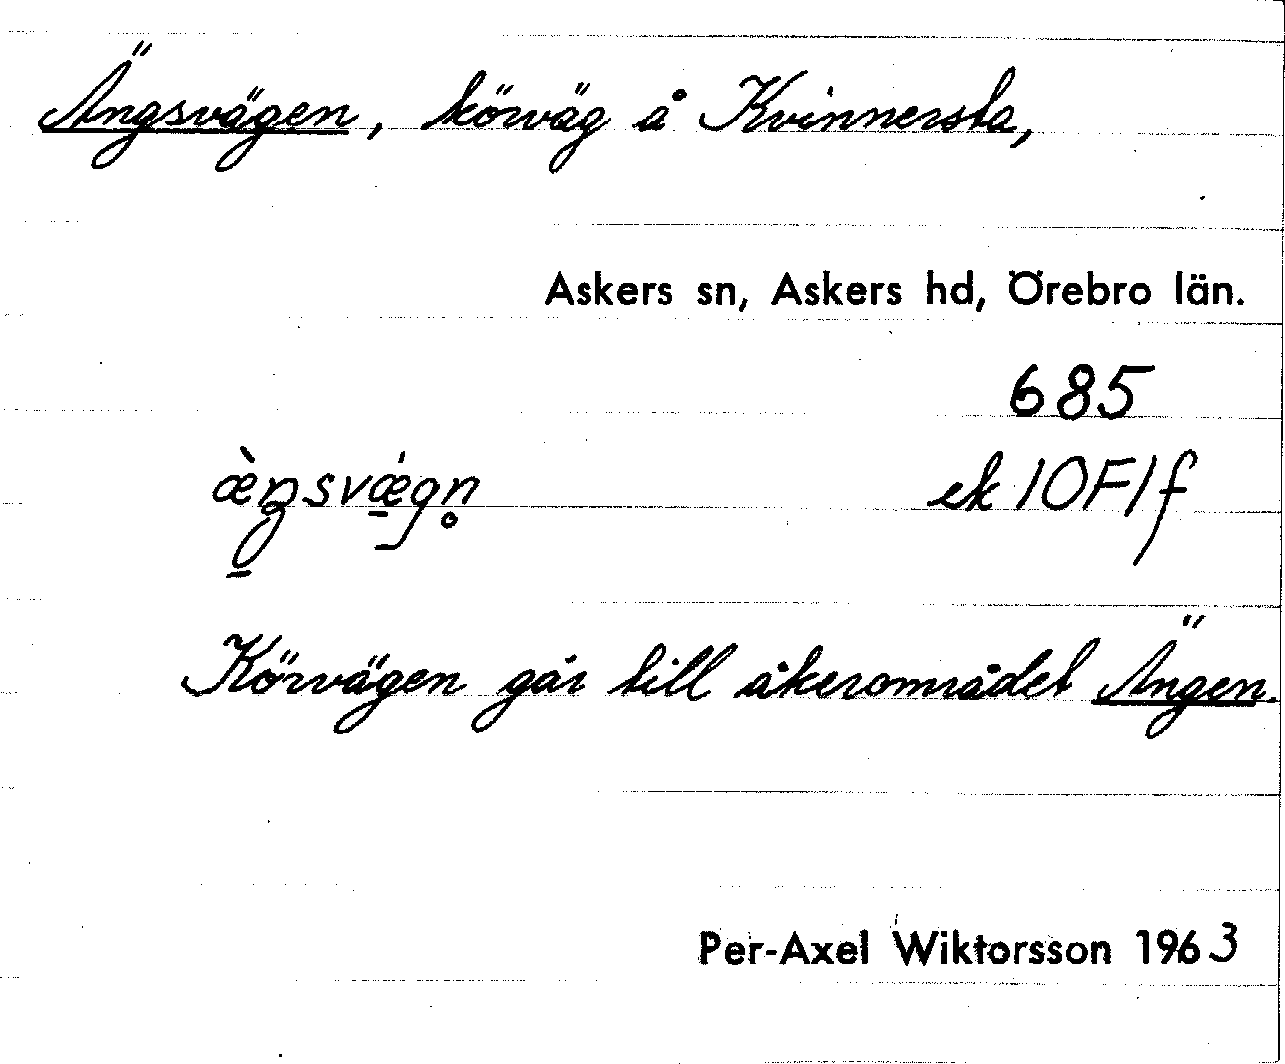 Ängsvägen, körväg å Kvinnersta,
Askers sn, Askers hd, Örebro län.
685
æ̀ŋsvǽgn̥ ek 10F1f
Körvägen går till åkerområdet Ängen.
Per-Axel Wiktorsson 1963